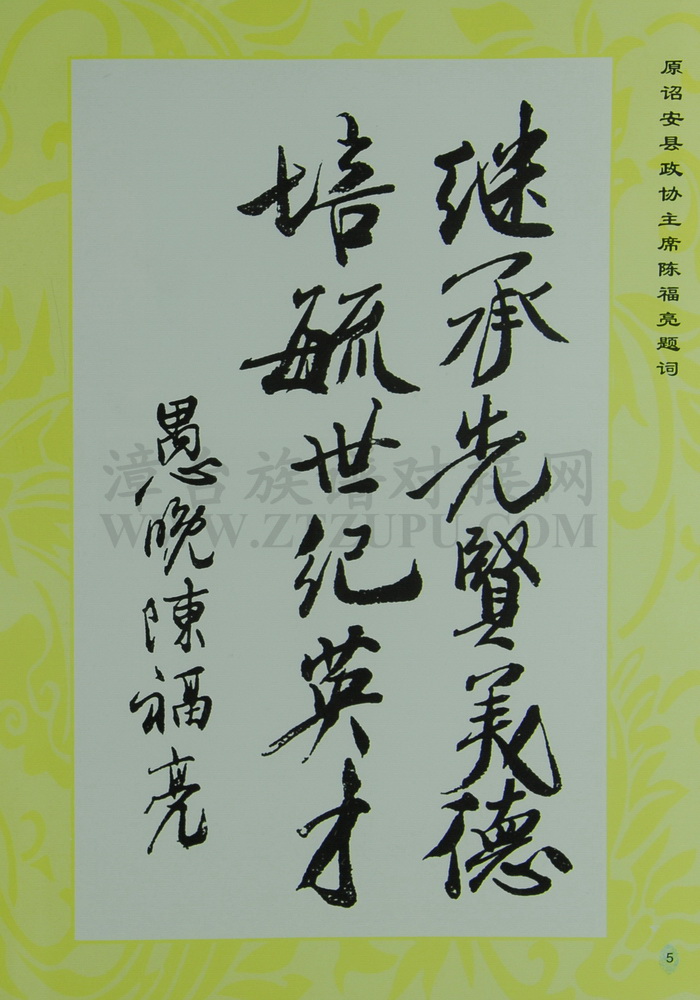 原诏安县政协主席陈福亮题词
继承先賢美德
培毓世纪英才
愚晚陳福亮
漳台族谱对接网
WWW.ZTZUPU.COM
5